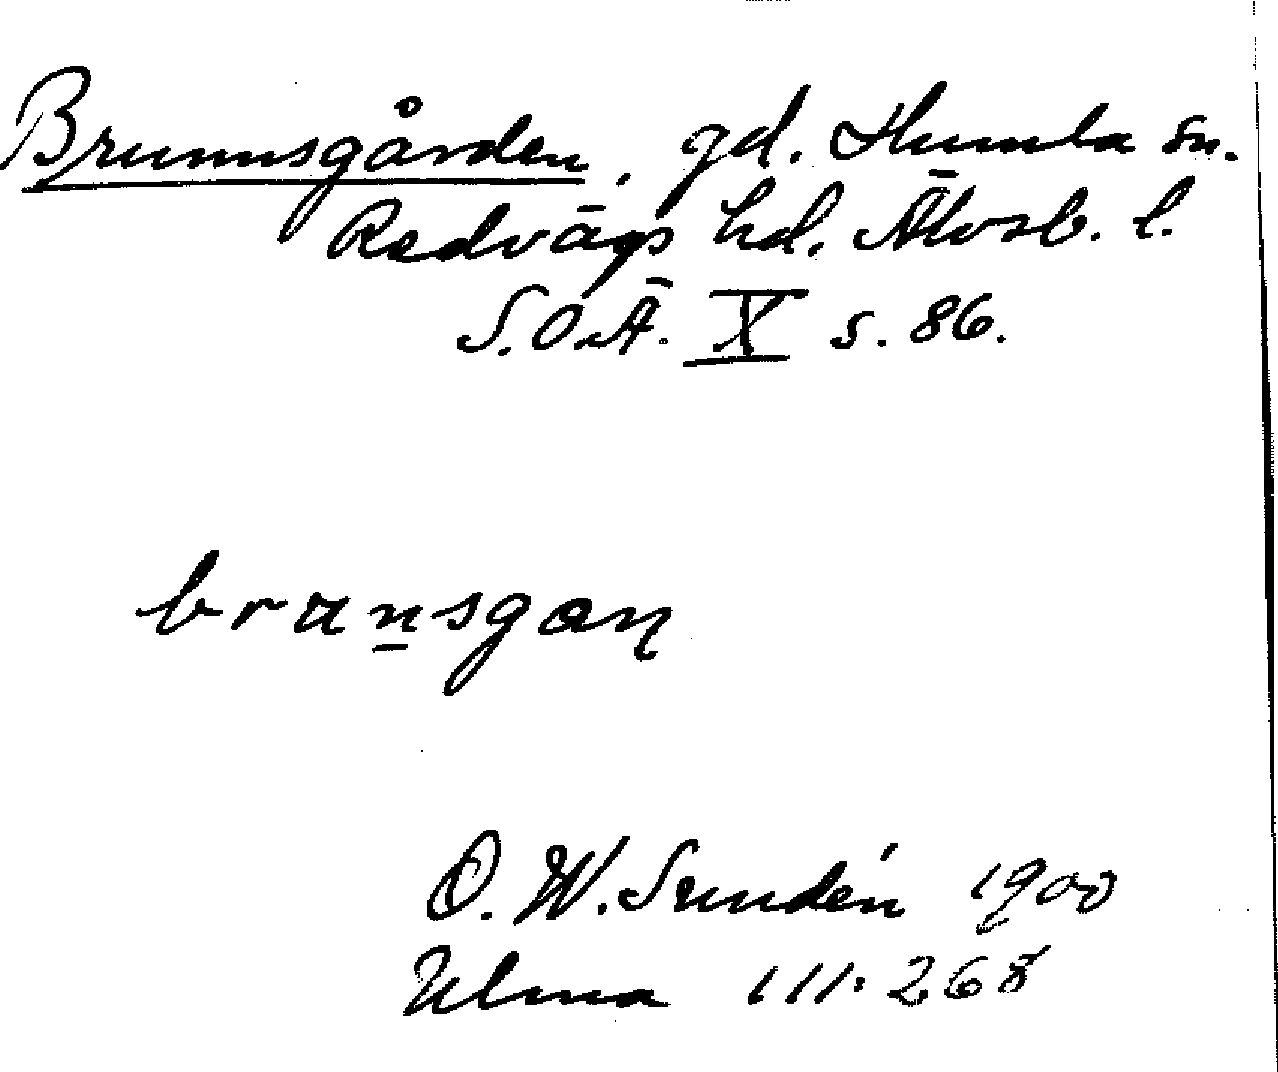 Brunnsgården, gd. Humla sn.
Redvägs hd. Älvsb. l.
S.O.Ä. X s. 86.
bransgaɳ
D. W. Sundén 1900
Ulma 111:268